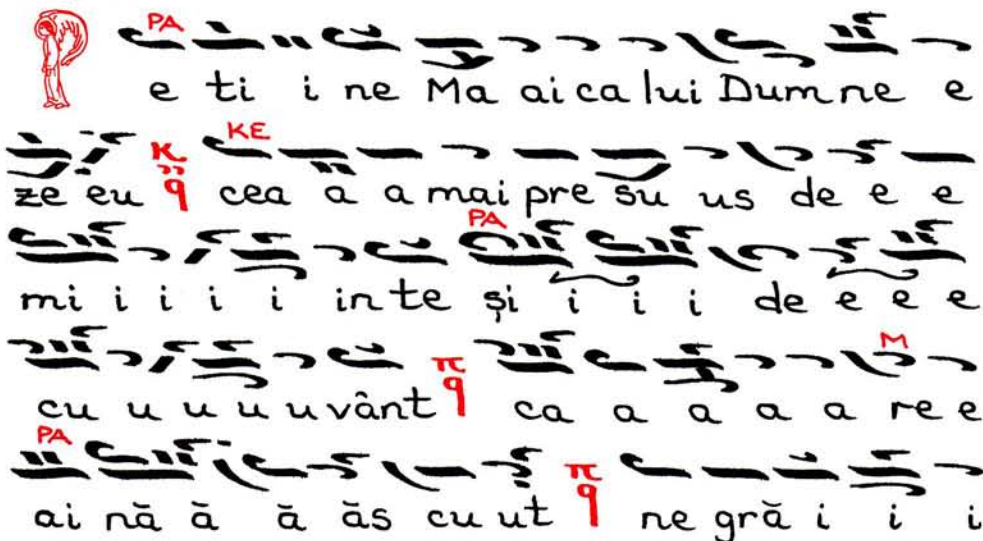 PA
P e ti i ne Ma ai ca lui Dum ne e
KE
ze eu κ q cea a a mai pre su us de e e
PA
mi i i i i in te și i i i de e e e
M
cu u u u u vânt π q ca a a a a re e
PA
ai nă ă ă ăs cu ut π q ne gră i i i